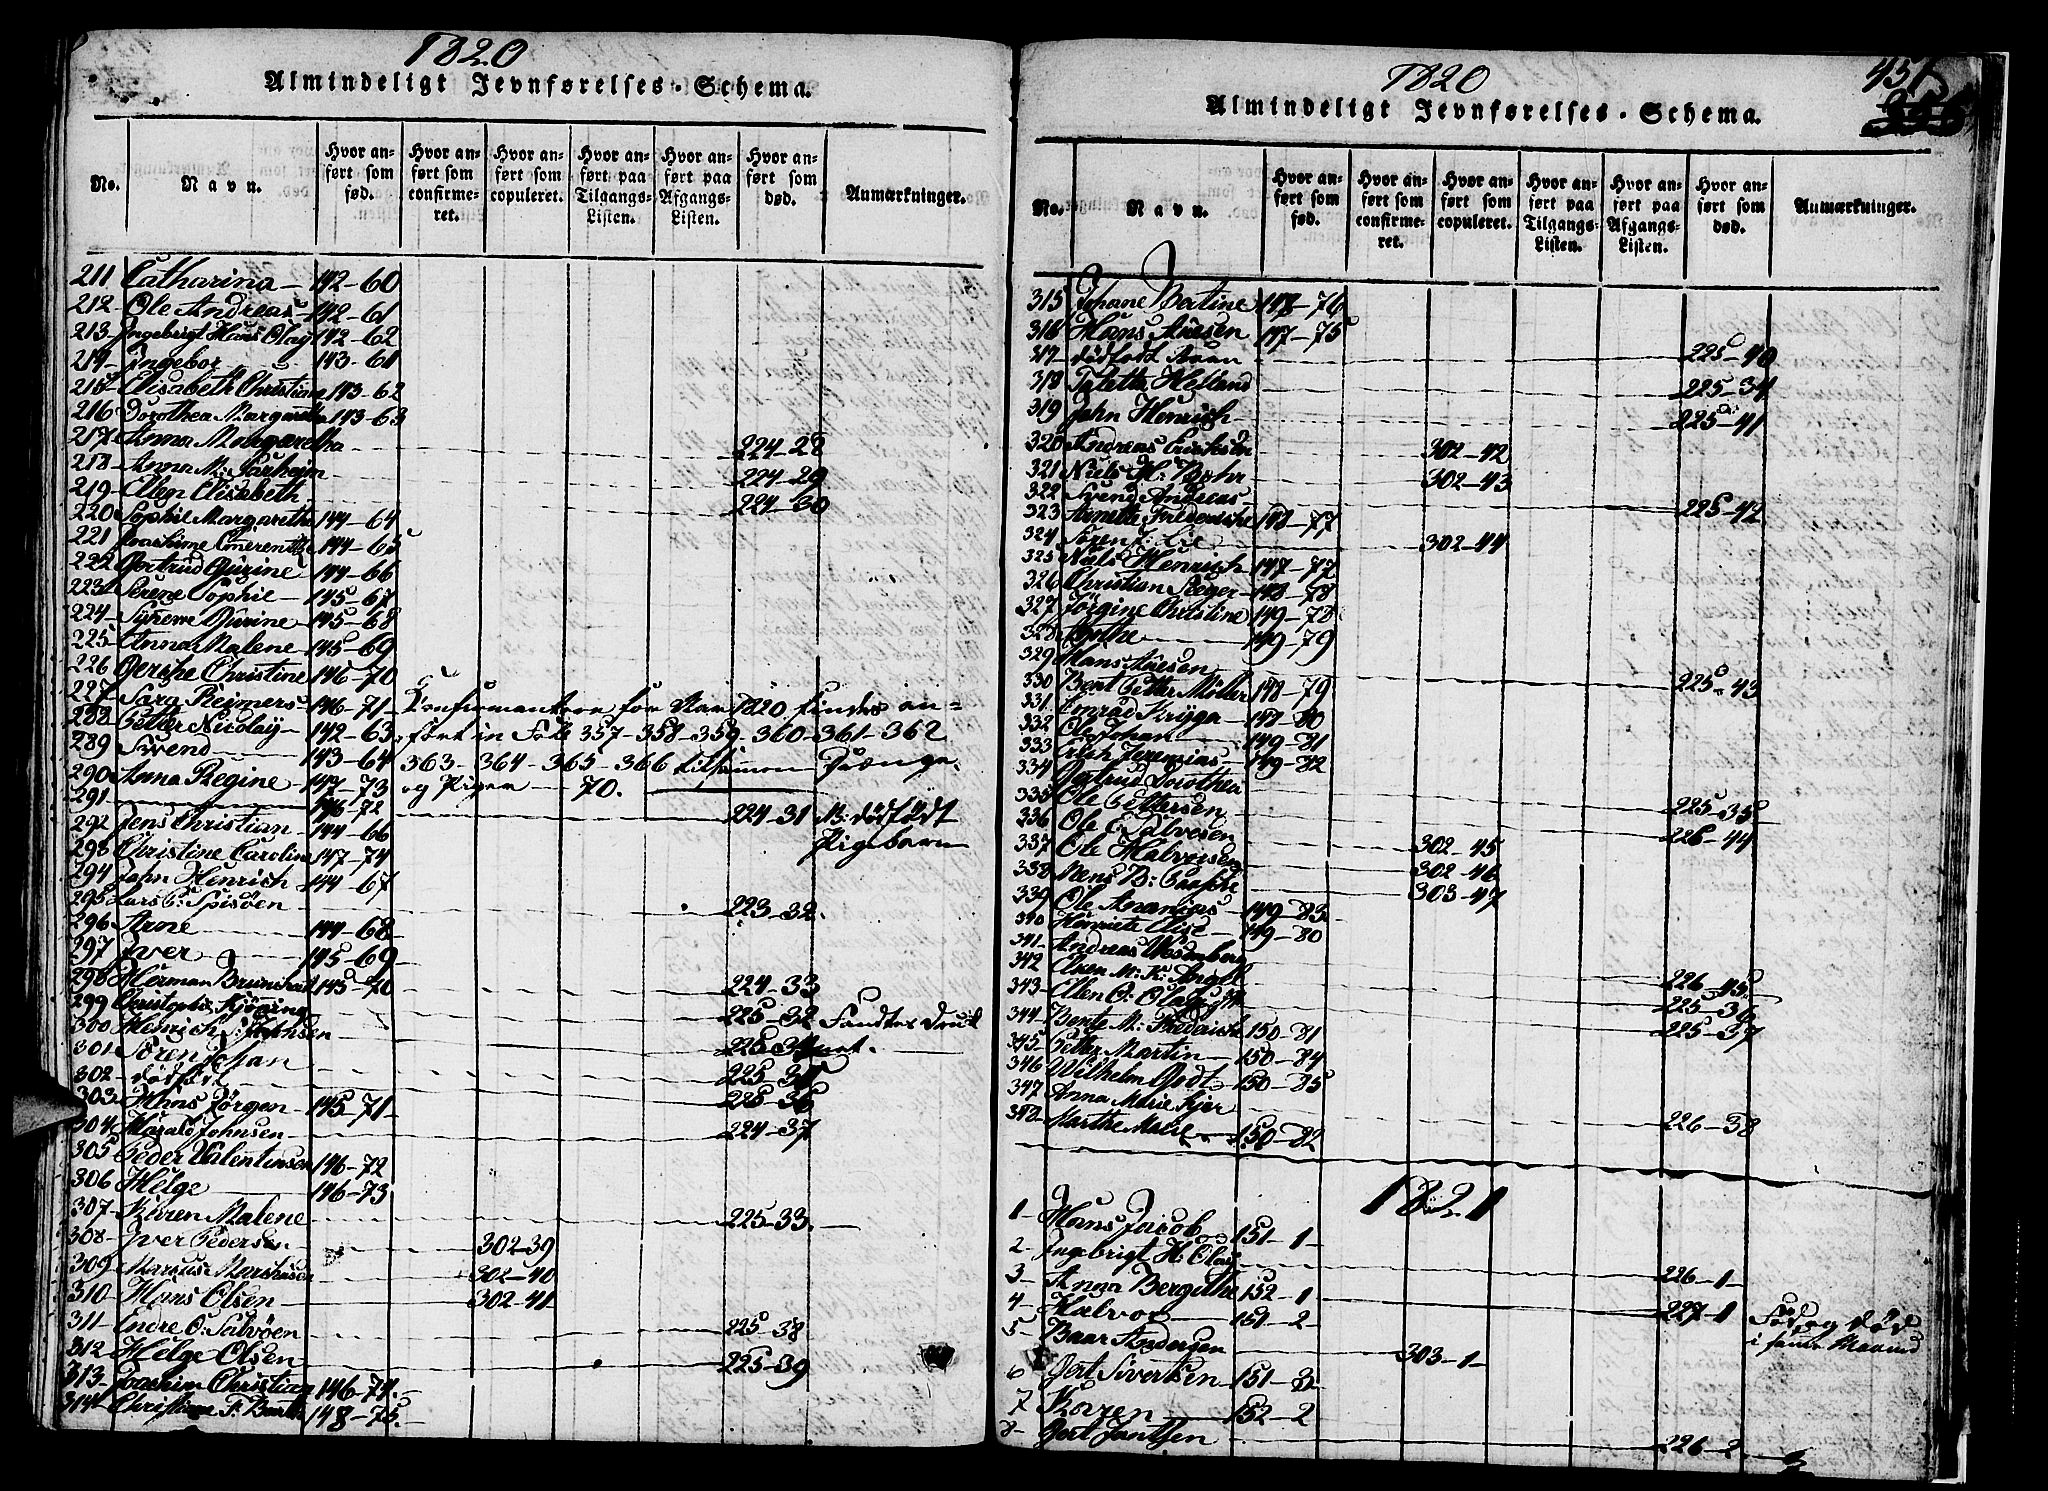 1820
Almindeligt Jevnførelses-Schema.
No. Navn. Hvor anført som fød. Hvor anført som confirmeret. Hvor anført som copuleret. Hvor anført paa Tilgangs-Listen. Hvor anført paa Afgangs-Listen. Hvor anført som død. Anmærkninger.
211 Catharina 142-60
212 Ole Andreas 142-61
213 Ingebrigt Hans Olay 142-62
214 Ingebor 143-61
215 Elisabeth Christian 143-62
216 Dorothea Margaretha 143-63
217 Anna Margaretha 224-28
218 Anna M: 224-29
219 Ellen Elisabeth 224-30
220 Sophie Margarethe 144-64
221 144-65
222 Gertrud Gurine 144-66
223 Serene Sophie 145-67
224 Gurine 145-68
225 Anna Malene 145-69
226 Christine 146-70
227 Sara Reimers 146-71 Konfirmanterne for Aar 1820 findes an-
288 Petter Nicolay 142-63 ført in Fol: 357-358-359-360-361-362
289 Svend 143-64 363-364-365-366 tilsammen Drænge
290 Anna Regine 147-73 og Pigen 70.
291 146-72 224-31 N: dødfødt
292 Jens Christian 144-66 Pigebarn
293 Christine Caroline 147-74
294 John Henrich 144-67
295 Lars 223-32.
296 Arne 144-68
297 Iver 145-69
298 Herman 145-70 224-33
299 Christopher 225-32 Fandtes Druk
300 Henrich J: Johnsen
301 Søren Johan
302 dødfød
303 Hans Jørgen 145-71 225-36
304 Harald Johnsen 224-37
305 Peder Valentinsen 146-72
306 Helge 146-73
307 Karen Malene 225-33.
308 Iver Pedersen 302-39
309 Marcus 302-40
310 Hans Olsen 302-41
311 Endre O: 225-38
312 Helge Olsen 225-39
313 Joachim Christian 146-74.
314 Christiane 148-75.
1820
451
355
Almindeligt Jevnførelses-Schema.
No. Navn. Hvor anført som fød. Hvor anført som confirmeret. Hvor anført som copuleret. Hvor anført paa Tilgangs-Listen. Hvor anført paa Afgangs-Listen. Hvor anført som død. Anmærkninger.
315 Johane Bertine 148-76
316 Hans 147-75
317 dødfødt Barn 225-40
318 Helland 225-34
319 John Henrich 225-41
320 Andreas 302-42
321 Niels H: Bøhr 302-43
322 Svend Andreas 225-42
323 148-77
324 Søren Lie 302-44
325 Niels Henrich 147-77
326 Christian Steger 148-78
327 Jørgine Christine 149-78
328 149-79
329 Hans 225-43
330 Bent Petter Møller 148-79
331 Conrad Kryger 148-80
332 Ole Johan 149-81
333 Erich Jeremias 149-82
334 Gertrud Dorothea 225-35
335 Ole Pettersen 226-44
336 Ole Salvesen 302-45
337 Ole Halvorsen 302-46
338 Mens B: 303-47
339 Ole Ananias 149-83
340 Henriete Elise 149-80
341 Andreas Wesenberg 226-45
342 M: K: 225-36
343 Ellen O: 225-37
344 Bente M: Frederiche 150-81
345 Petter Martin 150-84
346 Wilhelm 150-85
347 Anna Marie 226-38
348 Marthe Malie 150-82
1821
1 Hans Jacob 151-1
2 Ingebrigt H: Olay 226-1
3 Anna Bergithe 152-1 227-1 Fød og død
4 Halvor 151-2
5 Baar Andersen 303-1
6 Gert Sivertsen 151-3
7 Karen 152-2
8 Gert Jantsen 226-2